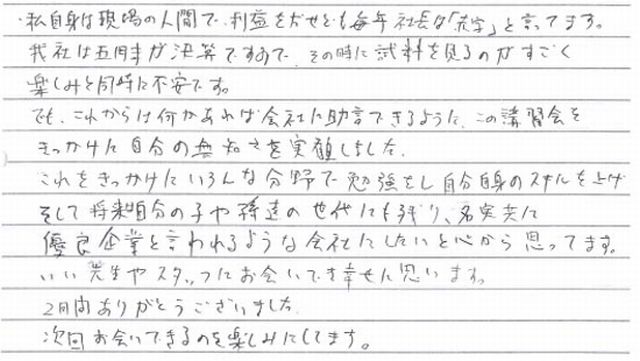 ・私自身は現場の人間で、利益を出せども毎年社長は「赤字」と言ってます。
我社は五月末が決算ですので、その時に試料を見るのがすごく
楽しみと同時に不安です。
でも、これからは何かあれば会社に助言できるように、この講習会を
きっかけに自分の無知さを実観しました。
これをきっかけにいろんな分野で勉強をし自分自身のスキルを上げ
そして将来自分の子や孫達の世代にも残り、名実共に
優良企業と言われるような会社にしたいと心から思ってます。
いい先生やスタッフにお会いでき幸せに思います。
2日間ありがとうございました。
次回お会いできるのを楽しみにしてます。